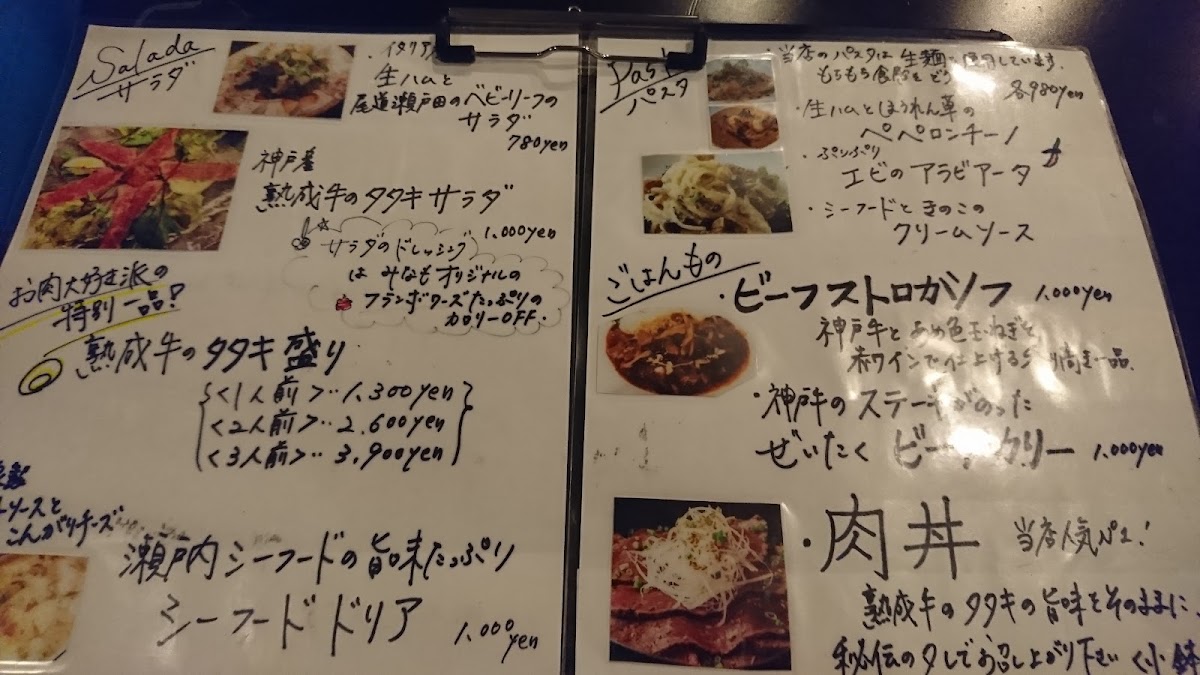 Salada
サラダ
イタリア
生ハムと
尾道瀬戸田のベビーリーフの
サラダ
780yen
神戸産
熟成牛のタタキサラダ
1,000yen
サラダのドレッシング
は みなもオリジナルの
フランボワーズたっぷりの
カロリーOFF.
お肉大好き派の
特別一品!
熟成牛のタタキ盛り
<1人前>‥1,300yen
<2人前>‥2,600yen
<3人前>‥3,900yen
ソースと
こんがりチーズ
瀬戸内シーフードの旨味たっぷり
シーフードドリア
1,000yen
パスタ
・当店のパスタは生麺使用しています。
もちもち食感を
各980yen
・生ハムとほうれん草の
ペペロンチーノ
・ぷりぷり
エビのアラビアータ
・シーフードときのこの
クリームソース
ごはんもの
・ビーフストロガノフ 1,000yen
神戸牛とあめ色玉ねぎを
赤ワインで仕上げる 一品.
・神戸牛のステーキがのった
ぜいたく ビーフカリー 1,000yen
・肉丼 当店人気No1!
熟成牛のタタキの旨味をそのままに
秘伝のタレでお召し上がり下さい<小鉢